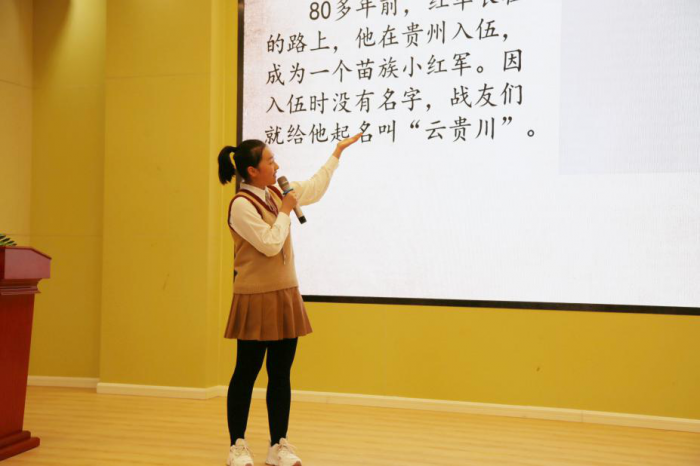 80多年前，红军长征
的路上，他在贵州入伍，
成为一个苗族小红军。因
入伍时没有名字，战友们
就给他起名叫“云贵川”。